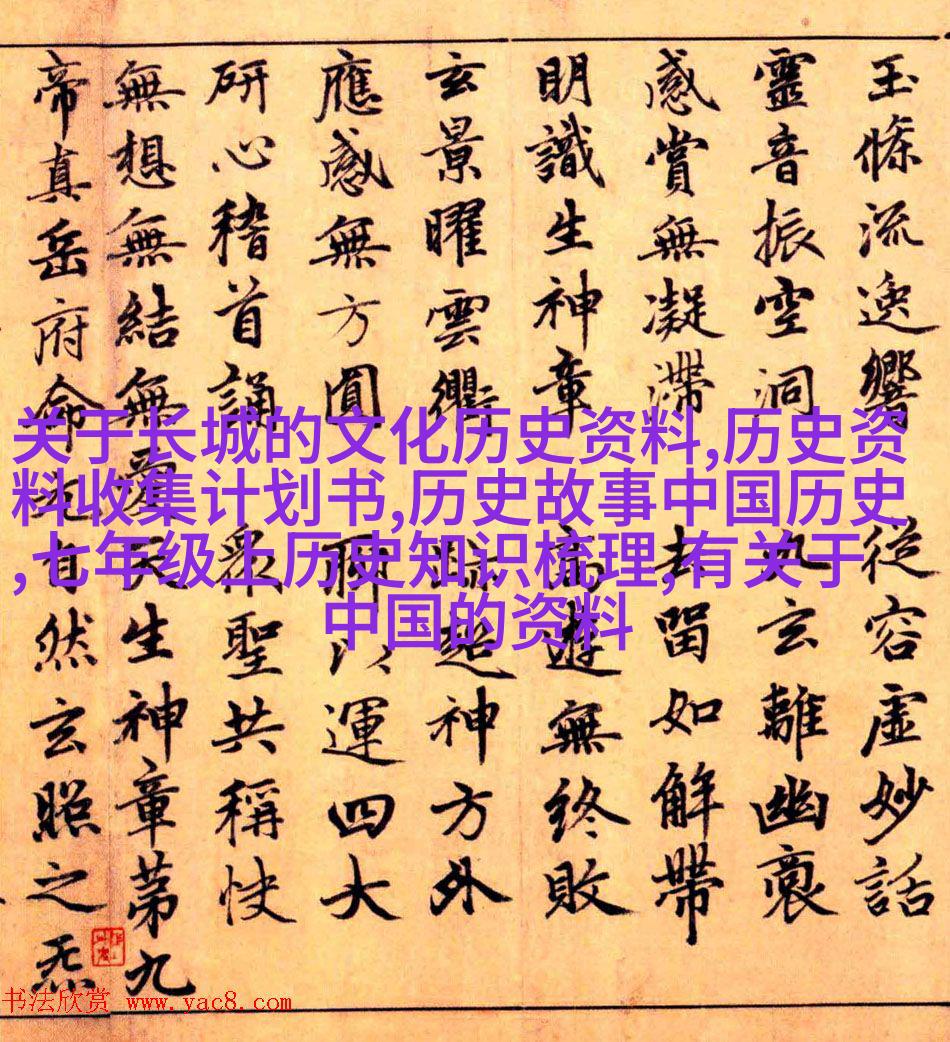 玉條流逸響 從容虛妙話
靈音振空洞 九玄離幽
感賞無凝滯 去畱如解帶
明識生神章 高遊無終敗
玄景曜雲衢 跡超神方外
應感無方圓 聊以運四大
研心稽首誦 衆聖共稱快
無想無結無愛天生神章第九
帝真岳府命元自然玄照之炁
关于长城的文化历史资料,历史资
料收集计划书,历史故事中国历史
,七年级上历史知识梳理,有关于
中国的资料
书法欣赏 www.yac8.com